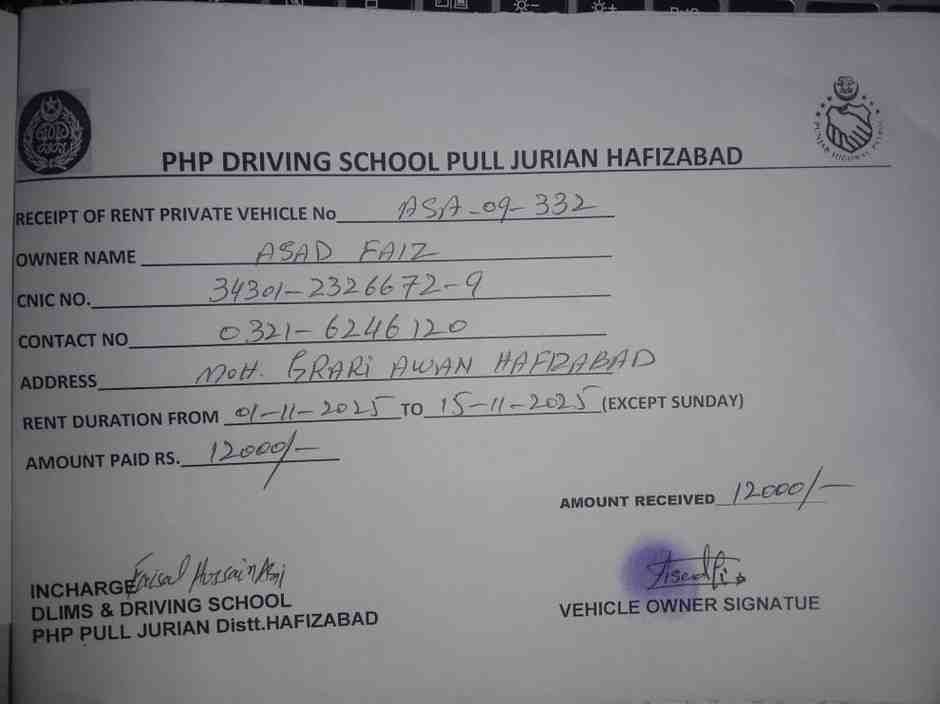 PHP DRIVING SCHOOL PULL JURIAN HAFIZABAD
PUNJAB HIGHWAY PATROL
RECEIPT OF RENT PRIVATE VEHICLE No ASA-09-332
OWNER NAME ASAD FAIZ
CNIC NO. 34301-2326672-9
CONTACT NO 0321-6246120
ADDRESS MOH. GRARI AWAN HAFIZABAD
RENT DURATION FROM 01-11-2025 TO 15-11-2025 (EXCEPT SUNDAY)
AMOUNT PAID RS. 12000/-
AMOUNT RECEIVED 12000/-
INCHARGE Faisal Hussain
DLIMS & DRIVING SCHOOL
PHP PULL JURIAN Distt.HAFIZABAD
VEHICLE OWNER SIGNATUE